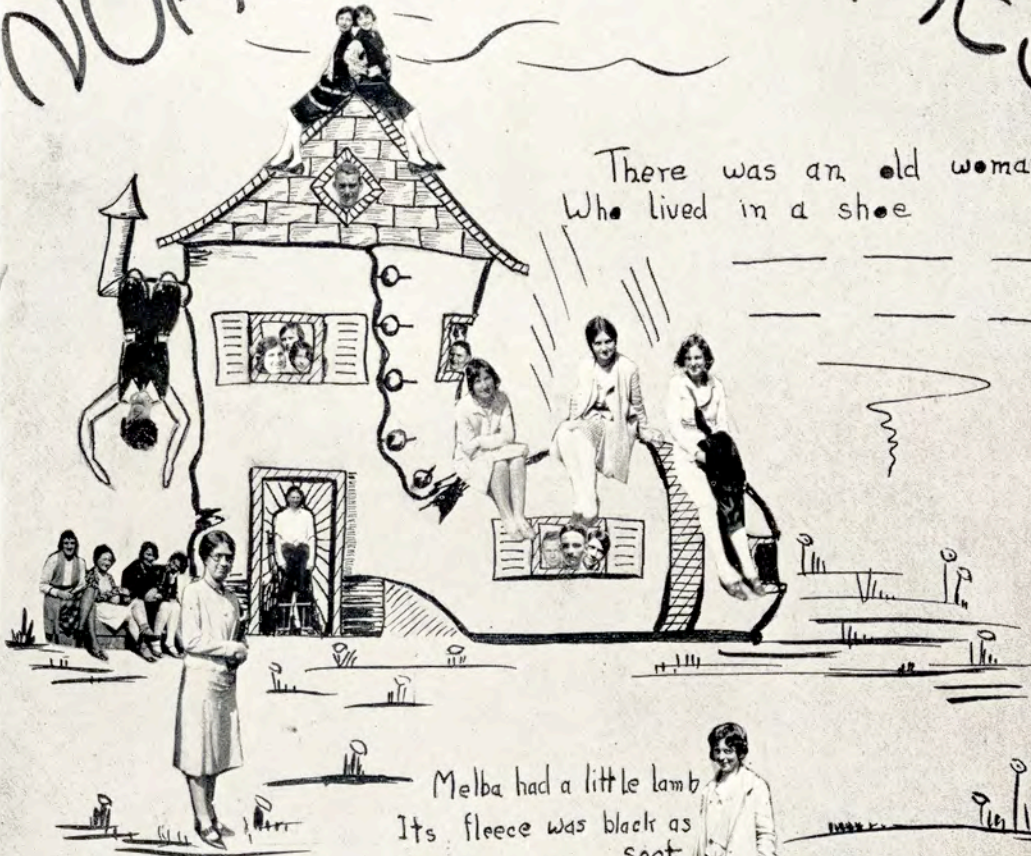 There was an old
Who lived in a shoe
Melba had a little lamb
Its fleece was black as
soot